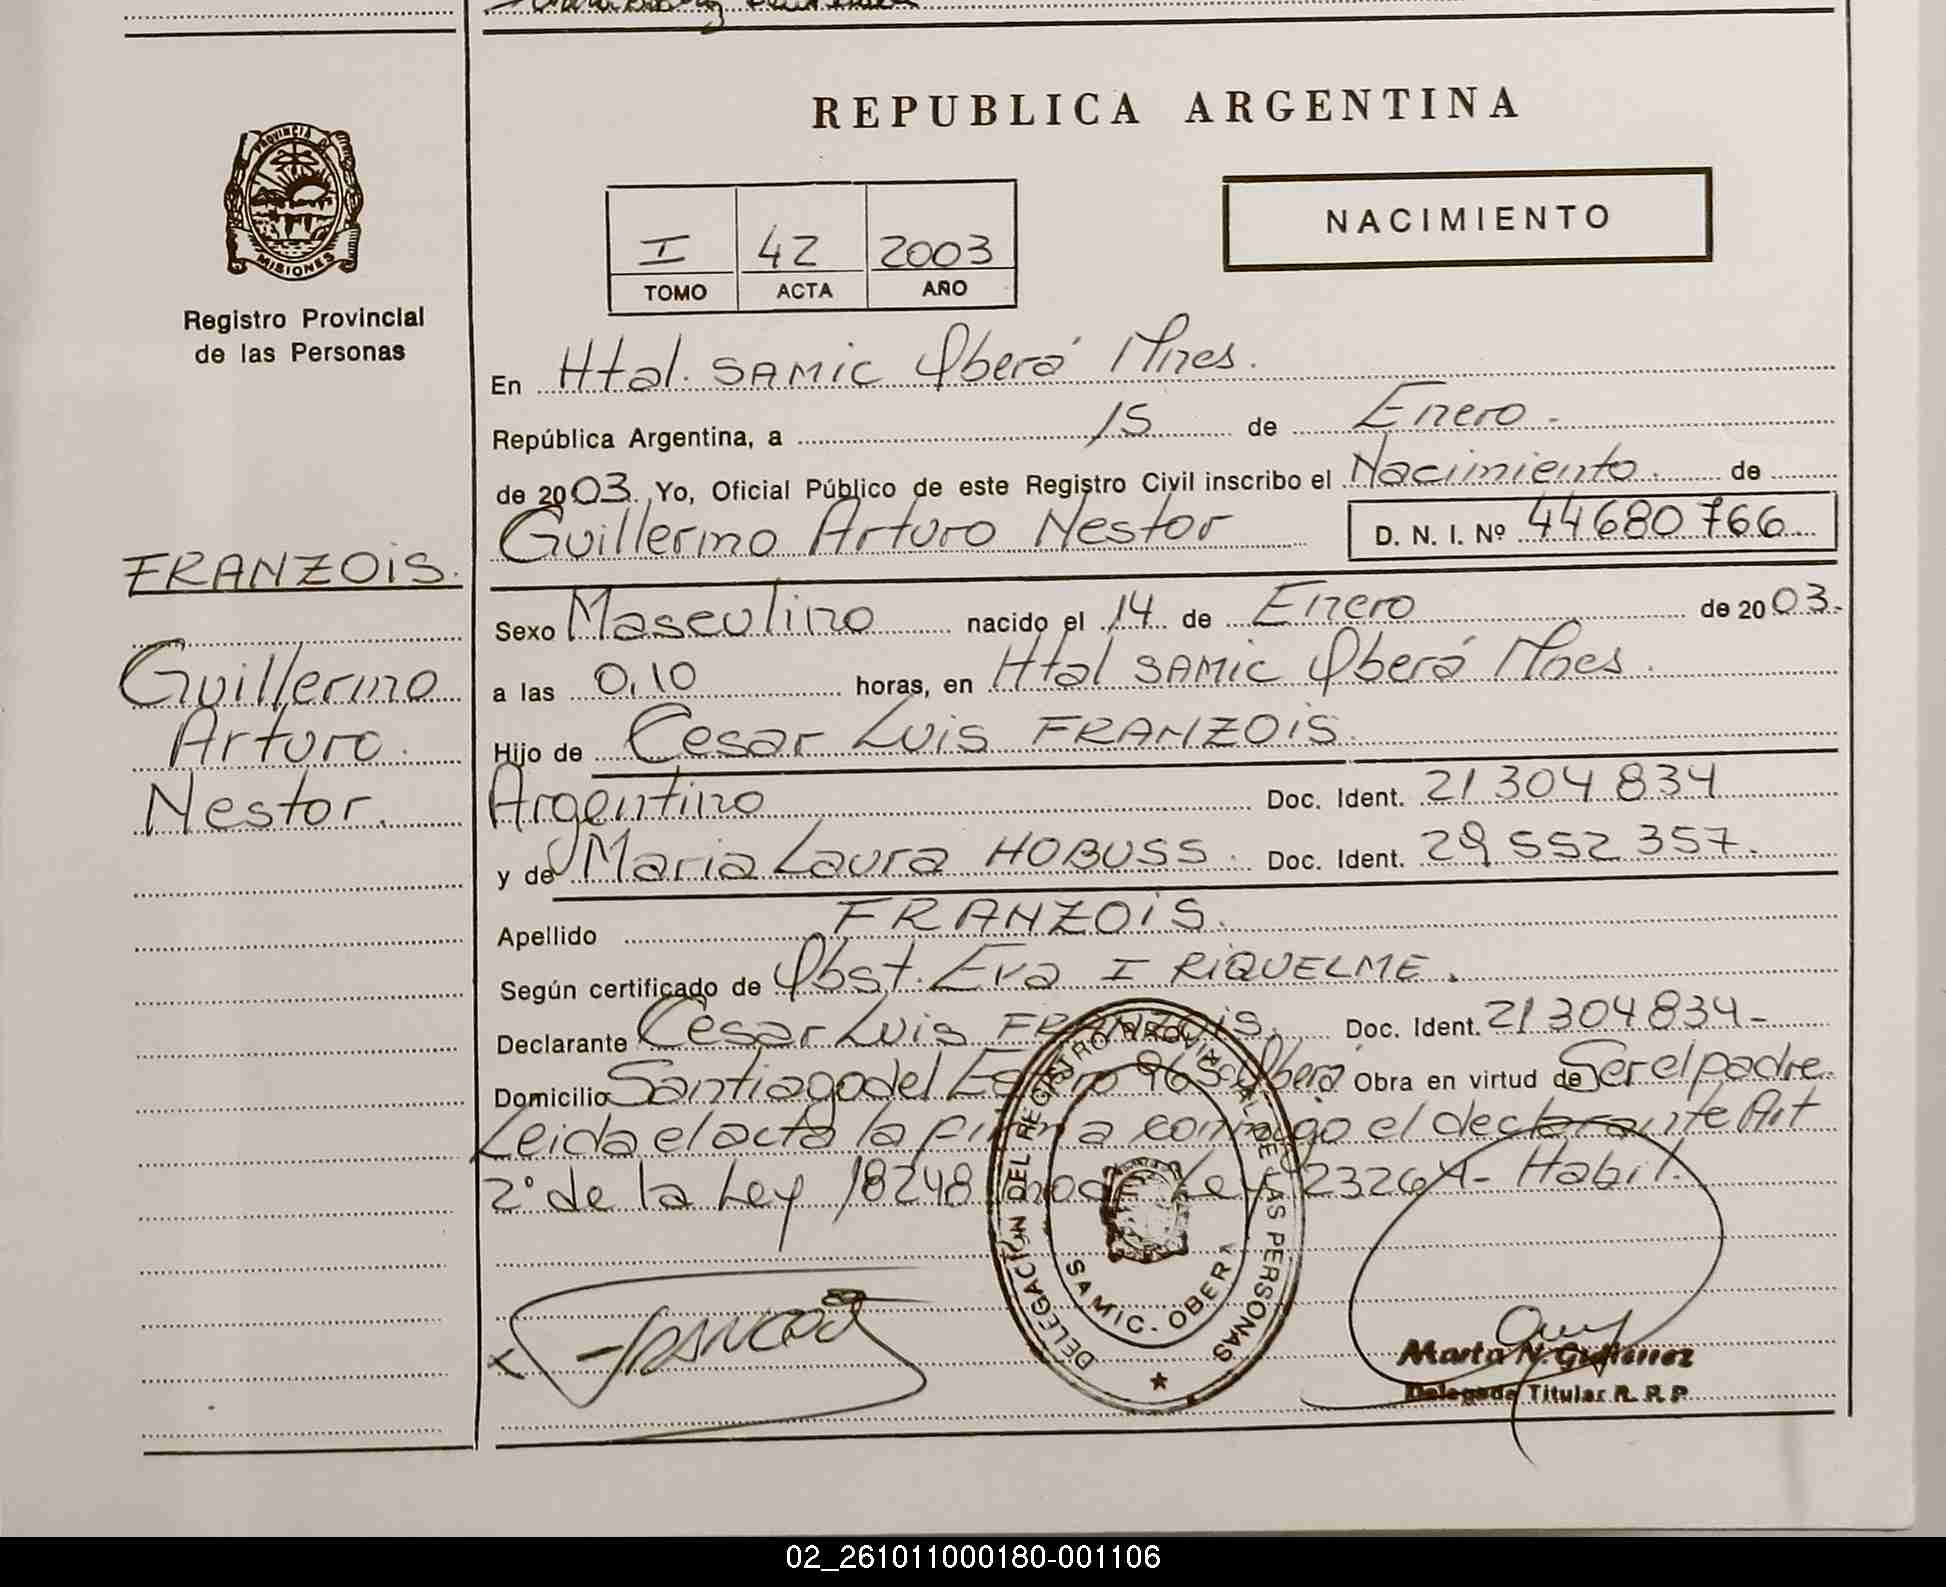 REPUBLICA ARGENTINA
PROVINCIA DE MISIONES
Registro Provincial
de las Personas
NACIMIENTO
I 42 2003
TOMO ACTA AÑO
En Htal. SAMIC Oberá Mnes.
República Argentina, a 15 de Enero.
de 2003. Yo, Oficial Público de este Registro Civil inscribo el Nacimiento. de
Guillermo Arturo Nestor D. N. I. Nº 44680766
FRANZOIS.
Guillermo
Arturo.
Nestor.
Sexo Masculino nacido el 14 de Enero de 2003.
a las 0,10 horas, en Htal SAMIC Oberá Mnes.
Hijo de Cesar Luis FRANZOIS.
Argentino Doc. Ident. 21 304 834
y de Maria Laura HOBUSS. Doc. Ident. 29 552 357.
Apellido FRANZOIS.
Según certificado de Obst. Eva I RIQUELME.
Declarante Cesar Luis FRANZOIS. Doc. Ident. 21304834-
Domicilio Santiago del Estero 965 Oberá Obra en virtud de Ser el padre.
Leida el acta la firma conmigo el declarante Art
2° de la Ley 18248 mod. Ley 23264- Habil.
DELEGACIÓN DEL REGISTRO PROVINCIAL DE LAS PERSONAS
SAMIC. OBERA
Marta N. Gutierrez
Delegada Titular R. P. P
02_261011000180-001106